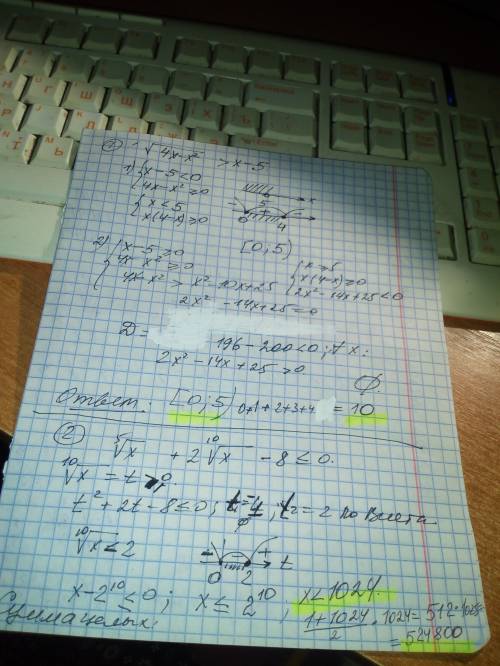 ① √4x-x² > x-5
1) { x-5<0
4x-x² ≥ 0
{ x < 5
x(4-x) ≥ 0
[0; 5)
2) { x-5 ≥ 0
4x-x² ≥ 0
4x-x² > x²-10x+25
{ x ≥ 5
x(4-x) ≥ 0
2x²-14x+25 < 0
2x²-14x+25=0
D = 196-200<0; ∀x:
2x²-14x+25 >0.
∅
Ответ: [0; 5) 0+1+2+3+4 = 10
② ⁵√x + 2 ¹⁰√x - 8 ≤ 0.
¹⁰√x = t ≥ 0;
t²+2t-8 ≤ 0; t₁=-4; t₂=2 по Виета
∅
¹⁰√x ≤ 2
- + 0 2 t
x-2¹⁰ ≤ 0; x ≤ 2¹⁰, x<1024.
Сумма целых: (1+1024)/2 · 1024 = 512·1025
= 524800